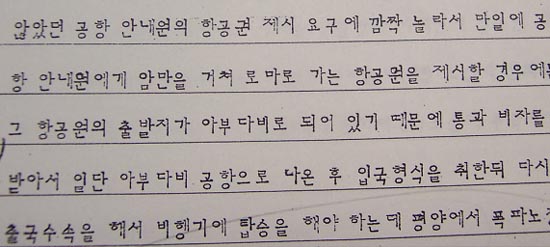 않았던 공항 안내원의 항공권 제시 요구에 깜짝 놀라서 만일에 공
항 안내원에게 암만을 거쳐 로마로 가는 항공원을 제시할 경우에는
그 항공원의 출발지가 아부다비로 되어 있기 때문에 통과 비자를
받아서 일단 아부다비 공항으로 나온 후 입국형식을 취한뒤 다시
출국수속을 해서 비행기에 탑승을 해야 하는데 평양에서 폭파노